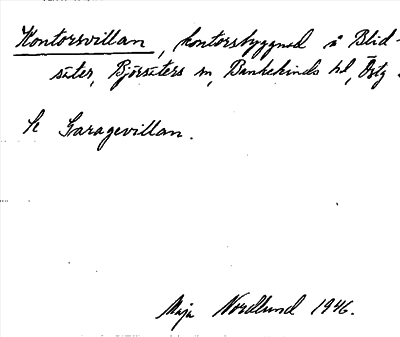 Kontorsvillan, kontorsbyggnad å Blid-
säter, Björsäters sn, Bankekinds hd, Östg.
k Garagevillan.
Maja Nordlund 1946.